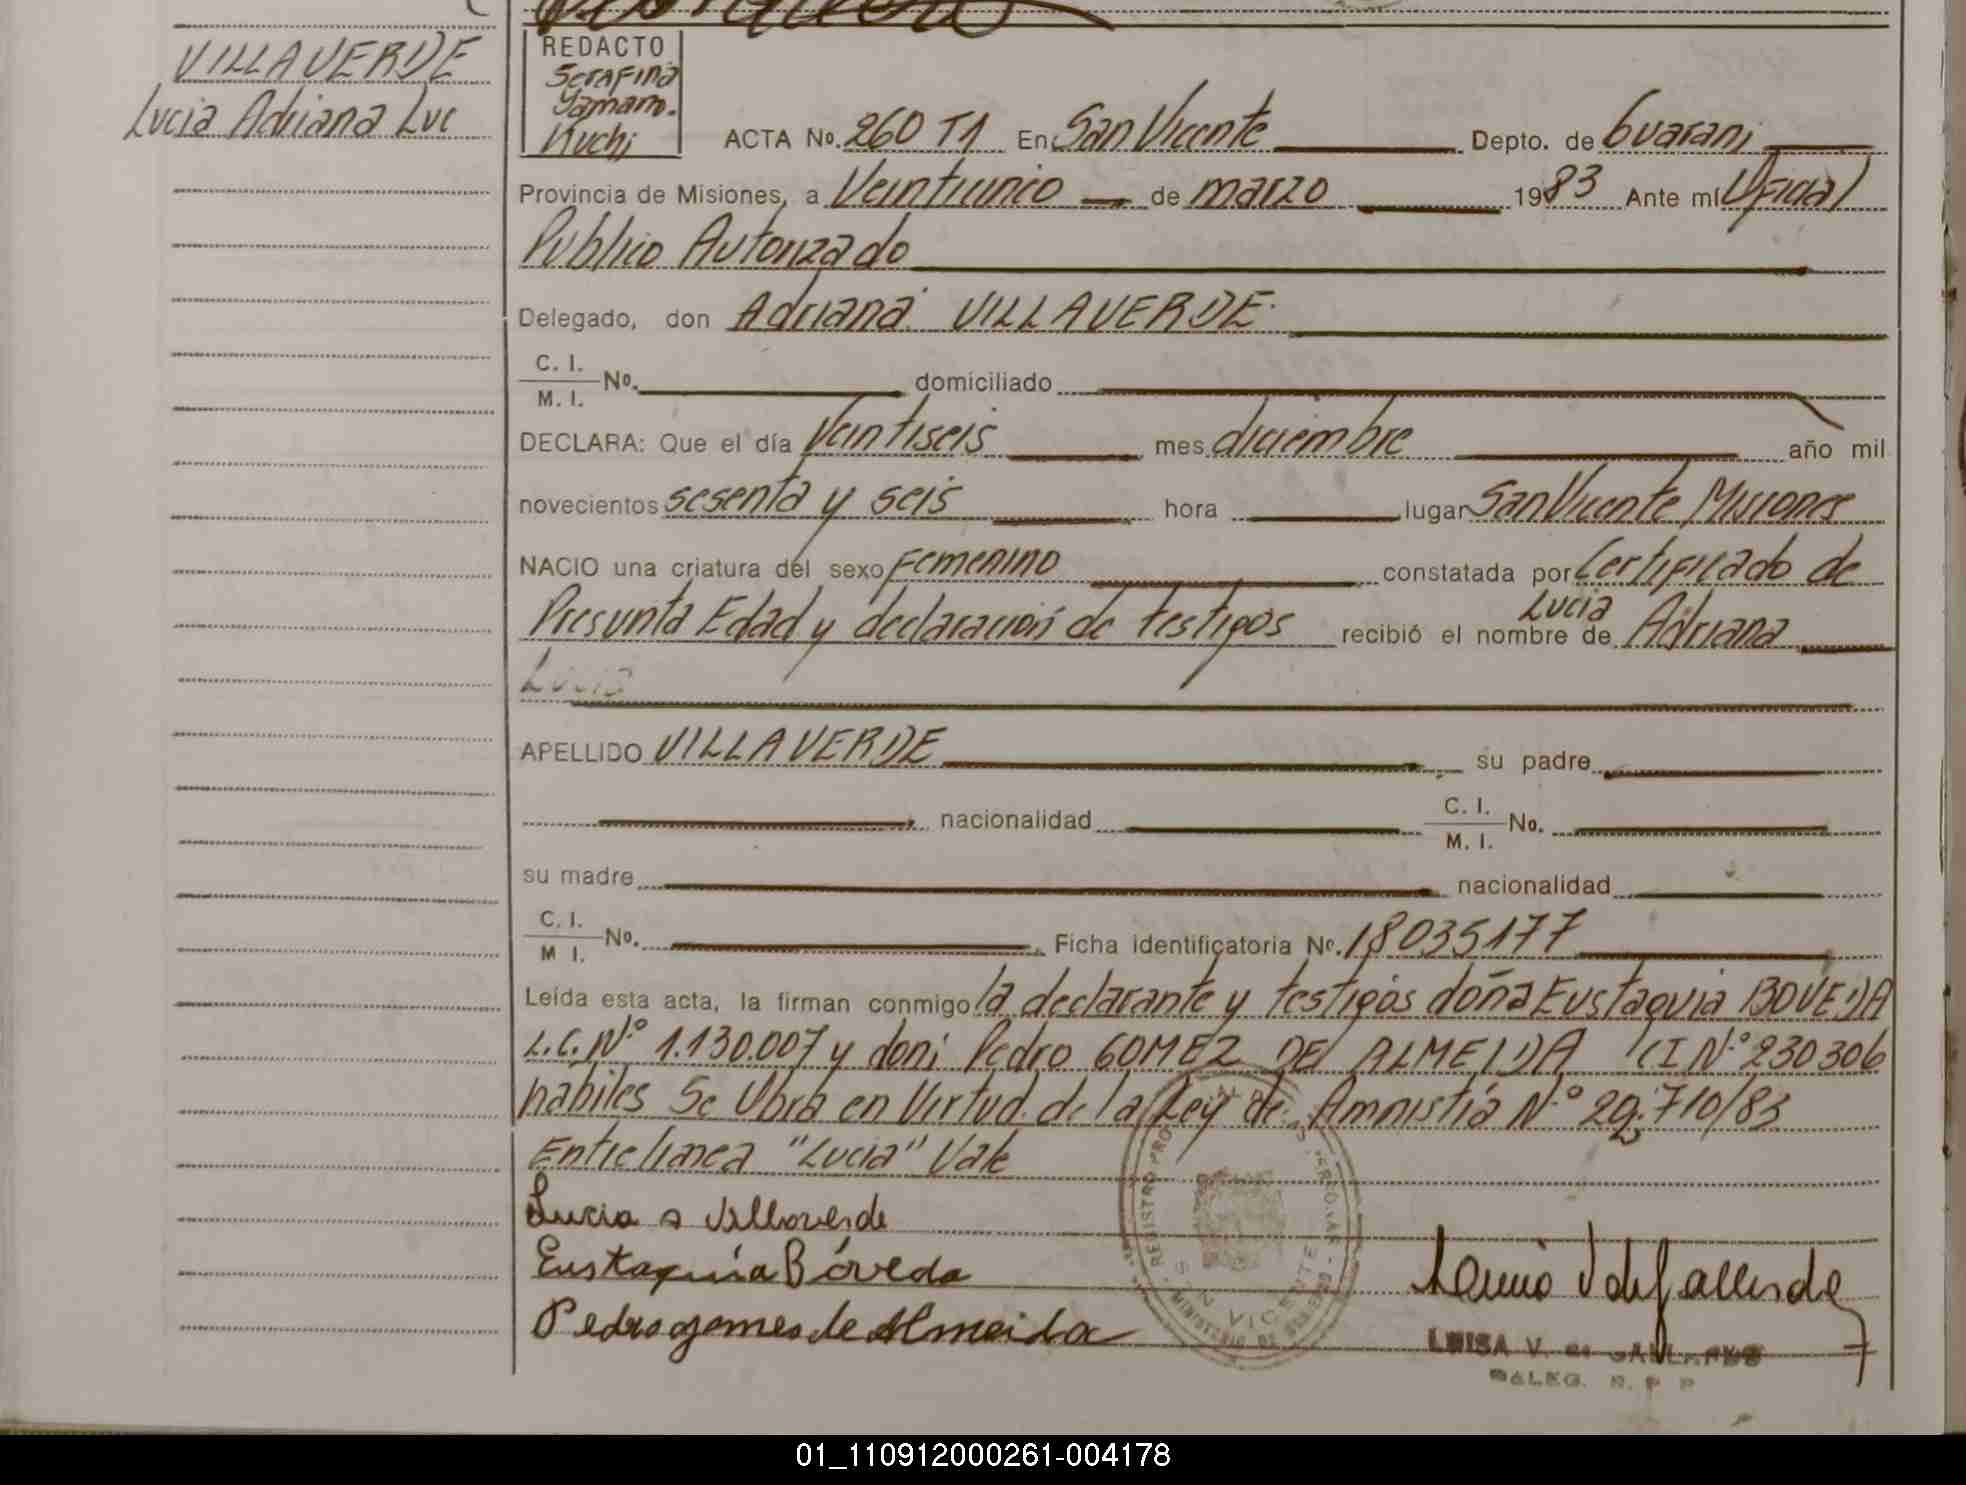 VILLAVERDE
Lucia Adriana Luc
REDACTO
Serafina
Yamam.
Kuchi
ACTA No. 260 T1 En San Vicente Depto. de Guarani
Provincia de Misiones, a Veintiunio de marzo 1983 Ante mí Oficial
Publico Autorizado
Delegado, don Adriana VILLAVERDE
C. I.
M. I. No. domiciliado
DECLARA: Que el día Veintiseis mes diciembre año mil
novecientos sesenta y seis hora lugar San Vicente Misiones
NACIO una criatura del sexo Femenino constatada por Certificado de
Presunta Edad y declaración de testigos recibió el nombre de Lucia Adriana
Lucia
APELLIDO VILLAVERDE su padre
nacionalidad C. I.
M. I. No.
su madre nacionalidad
C. I.
M I. No. Ficha identificatoria No. 18035177
Leída esta acta, la firman conmigo la declarante y testigos doña Eustaquia BOVEDA
L.C. Nº 1.130.007 y don Pedro GOMEZ DE ALMEIDA CI Nº 230306
habiles Se Obra en Virtud de la Ley de Amnistia Nº 22.710/83
Entrelinea "Lucia" Vale
Lucia a Villaverde
Eustaquia Bóveda
Pedro gomes de Almeida
REGISTRO PRO
SAN VICENTE
MINISTERIO DE GOBIERNO
LUISA V. de GALLARDO
DALEG. R. P P
01_110912000261-004178